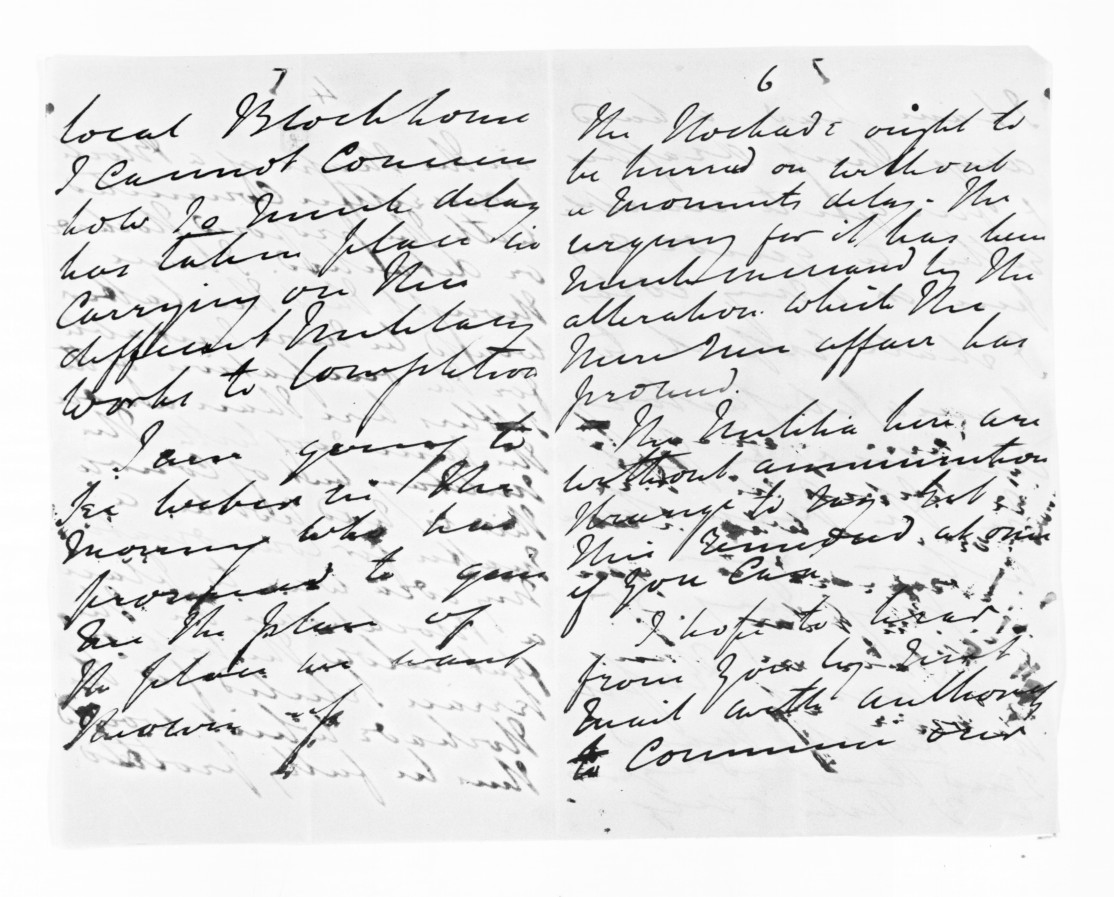 7
local Blockhouse
I cannot conceive
how so much delay
has taken place in
carrying on the
different Military
Works to completion
I am going to
see in the
morning who has
promised to give
me the plan of
the place we want
thrown up
6
The Stockade ought to
be hurried on without
a moments delay. The
urgency for it has been
much increased by the
alteration which the
affair has
produced.
The Militia here are
without ammunition
strange to say. Get
this remedied at once
if you can
I hope to hear
from you by first
mail with authority
to commence our